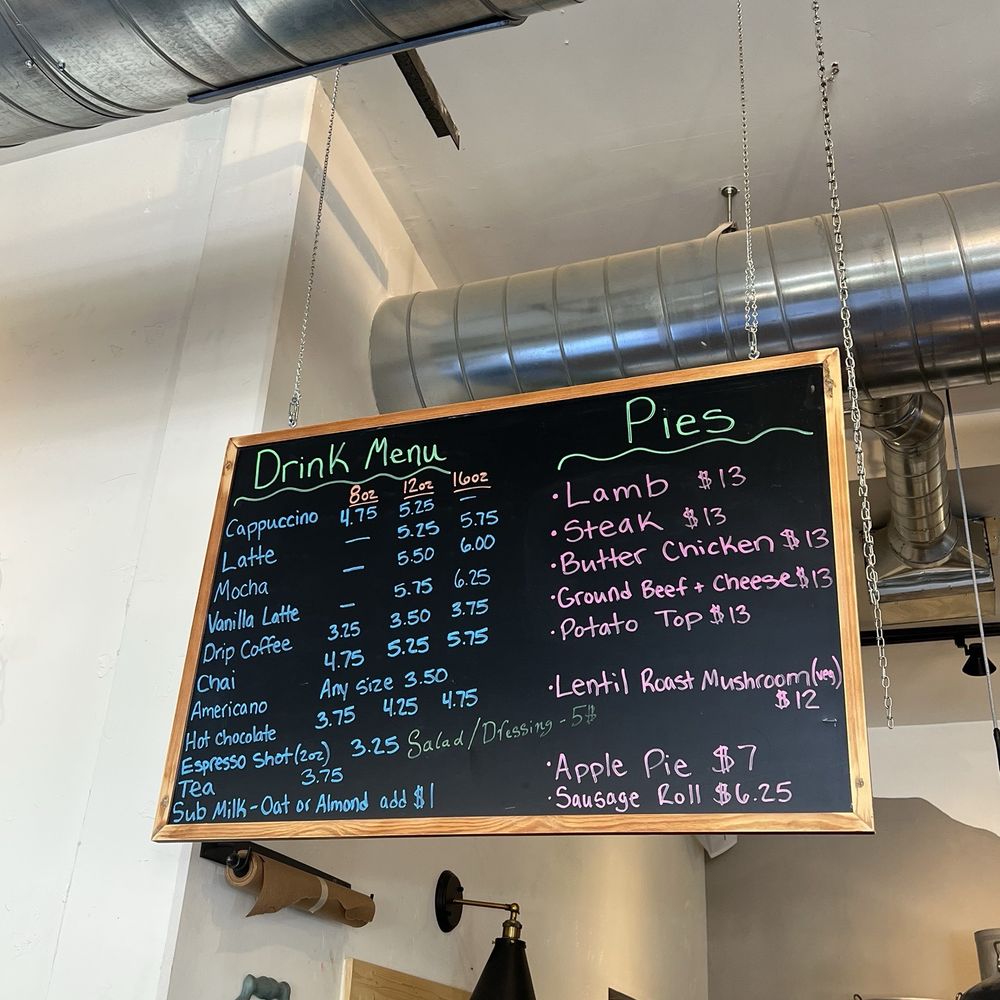 Drink Menu
8oz 12oz 16oz
Cappuccino 4.75 5.25 —
Latte — 5.25 5.75
Mocha — 5.50 6.00
Vanilla Latte — 5.75 6.25
Drip Coffee 3.25 3.50 3.75
Chai 4.75 5.25 5.75
Americano Any size 3.50
Hot Chocolate 3.75 4.25 4.75
Espresso Shot (2oz) 3.25
Tea 3.75
Sub Milk - Oat or Almond add $1
Salad/Dressing - 5$
Pies
· Lamb $13
· Steak $13
· Butter Chicken $13
· Ground Beef + Cheese $13
· Potato Top $13
· Lentil Roast Mushroom (veg)
$12
· Apple Pie $7
· Sausage Roll $6.25